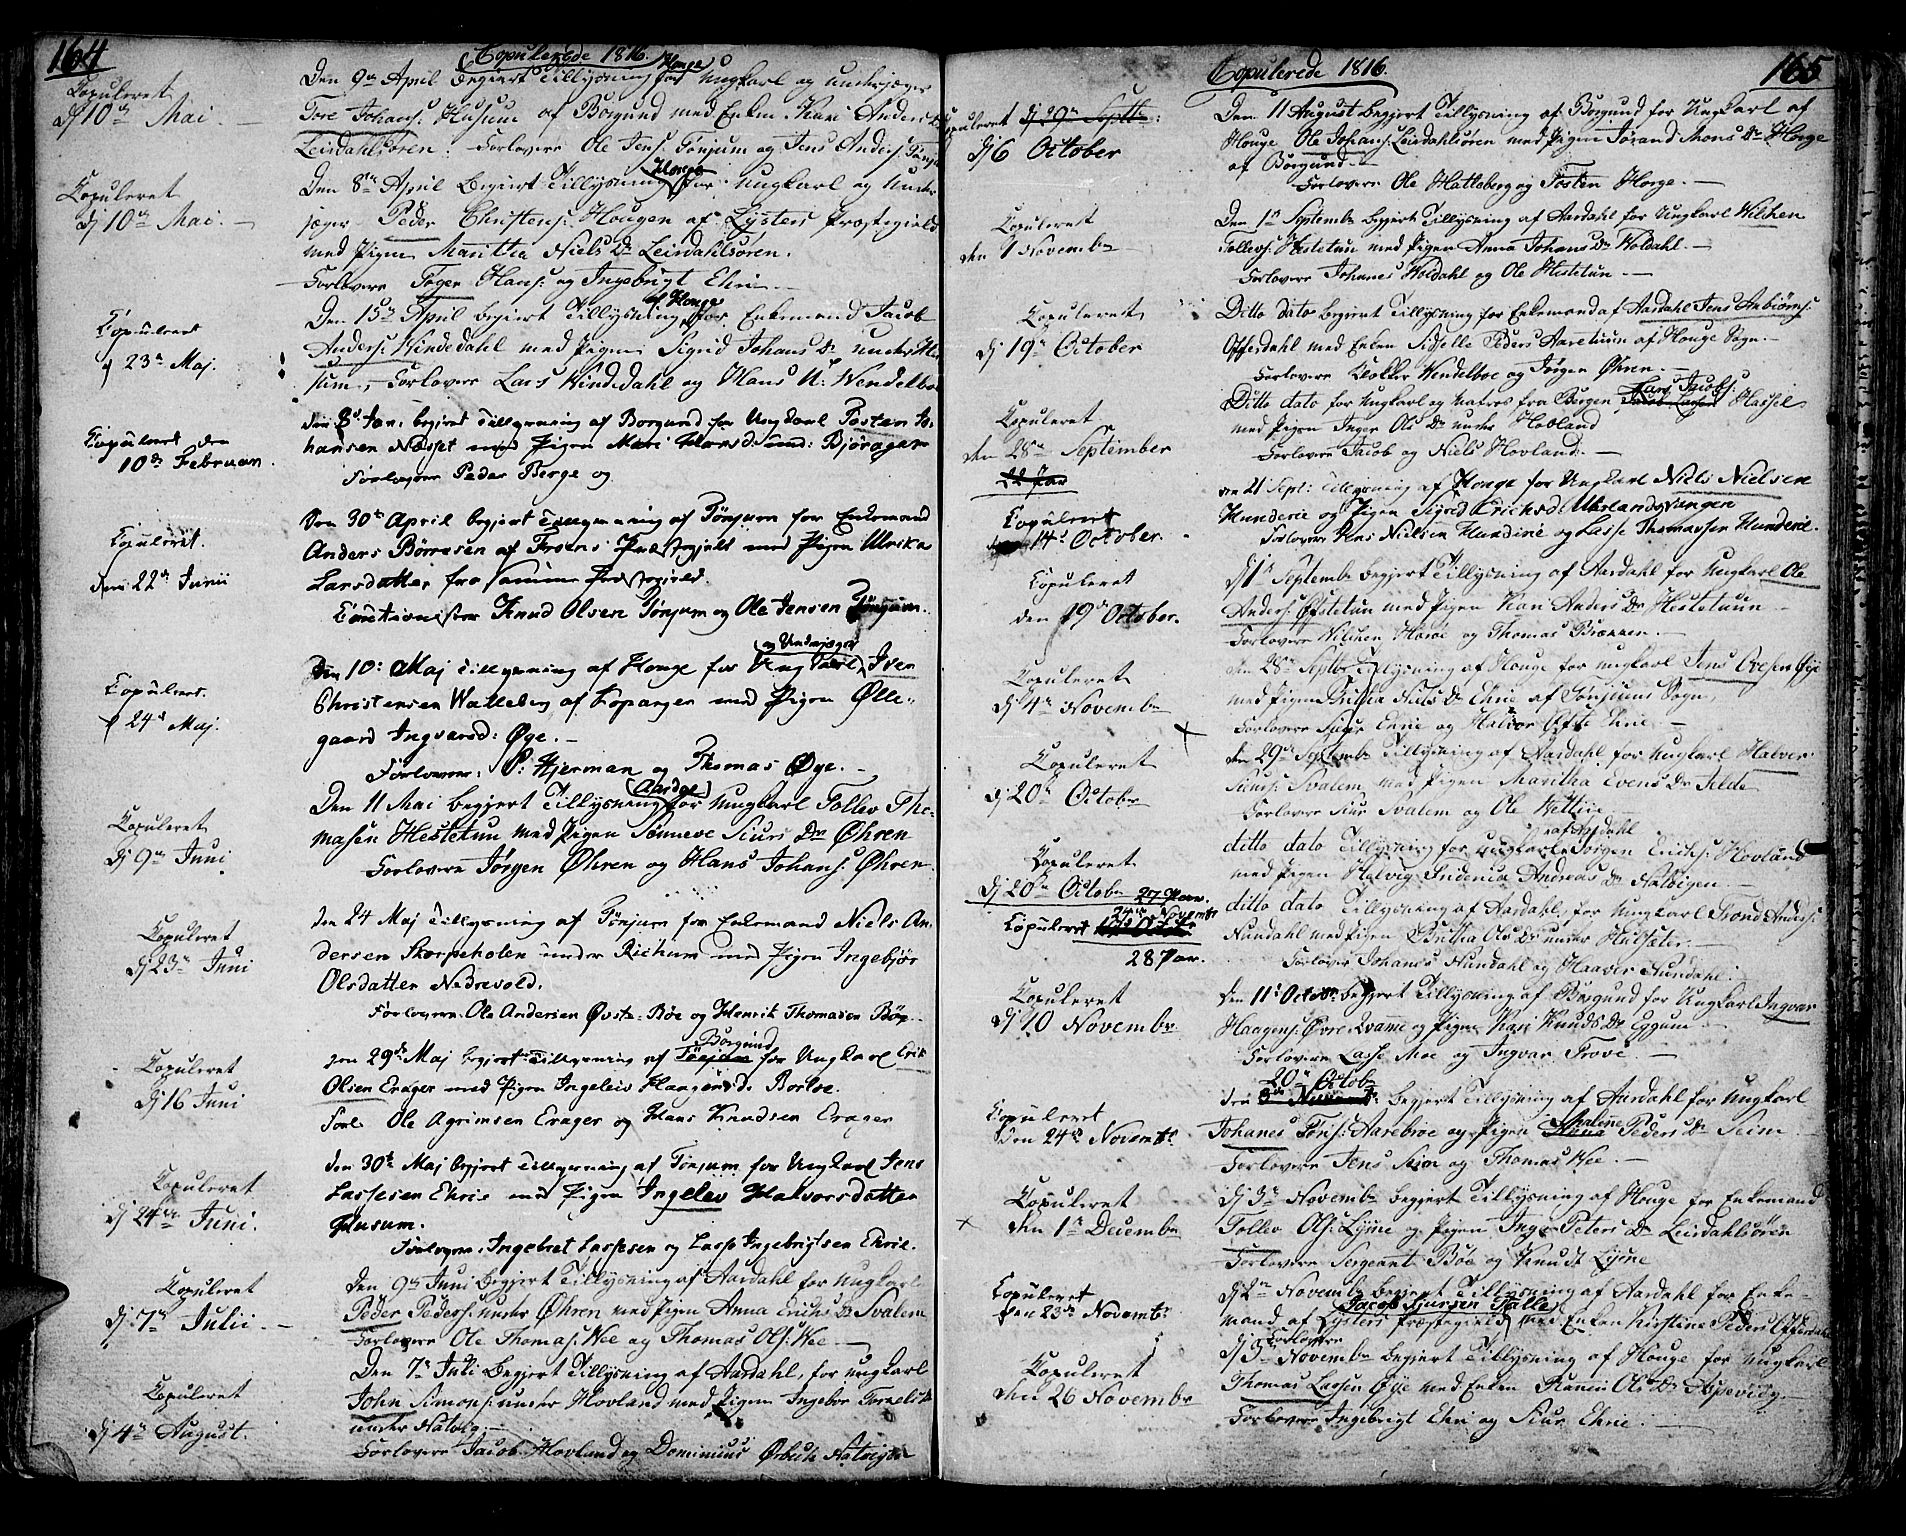 164
Copulerede 1816.
Copuleret
dj 10de Mai.
Den 9de April begjert Tillysning for Ungkarl og Underjæger
Houge
Tore Johans: Husum af Borgund med Enken Kari Anders Dr
Leirdahlsören. Forlovere Ole Jens: Tönjum og Jens Anders: Tönjum
Copuleret
dj 10de Mai.
Den 8de April begjert Tillysning for Ungkarl og Under
Houge
jæger Peder Christens: Hougen af Lysters Præstegield
med Pigen Maritha Niels Dr Leirdahlsören.
Forlovere Hans: og Ingebrigt Ehri
Copuleret
d 23de Maj.
Den 15de April begjert Tillysning for Enkemand Jacob
af Houge
Anders: Hindedahl med Pigen Sigrid Johans Dr under Hu
sum, Forlovere Lars Hindedahl og Hans N: Wendelboe
Copuleret den
10de Februar.
den 8de Jan: begjert Tillysning af Borgund for Ungkarl Tosten Jo-
hansen Næsset med Pigen Mari Hansd: und: Björagan
Forlovere Peder Berge og
Copuleret.
den 22de Junii
Den 30te April begjert Tillysning af Tönjum for Enkemand
Anders Börresen af Præstegjeld med Pigen Ulrika
Larsdatter fra samme Præstegield.
Cautionister Knud Olsen Tönjum og Ole Jensen Tönjum.
Copuleret.
d 24de Maj.
Den 10: Maj Tillysning af Houge for Ungkarl Iver
og Underjæger
Christensen Walleberg af Kopanger med Pigen Ølle-
gaard Ingvarsd: Øye.
Forlovere: P: Hjerman og Thomas Øye.
Copuleret
dj 9de Juni
Den 11 Mai begjert Tillysning for Ungkarl Tollev Tho-
masen Hestetun med Pigen Sønneve Siurs Dr Øhren
Forlovere Jørgen Øhren og Hans Johans: Øhren.
Copuleret
dj 23de Juni
den 24 Maj Tillysning af Tönjum for Enkemand Niels An-
dersen Skorpeholen under Richum med Pigen Ingebjör
Olsdatter Nedrevold.
Forlovere Ole Andersen Øvste-Böe og Henrik Thomasen Böe
Copuleret
dj 16 Juni
Borgund
den 29de Maj begjert Tillysning af Tönjum for Ungkarl Erik
Olsen Erager med Pigen Ingeleis Haagensd: Borloe.
Forl: Ole Agrimsen Erager og Hans Knudsen Erager
Copuleret
dj 24de Juni.
den 30te Maj begjert Tillysning af Tönjum for Ungkarl Jens
Lassesen Ehrie med Pigen Ingelev Halvorsdatter
Husum.
Forlovere, Ingebret Lassesen og Lasse Ingebrigtsen Ehrie.
Copuleret
dj 7de Julii
Den 9de Juni begjert Tillysning af Aardahl for Ungkarl
Peder Peders: under Øhren med Pigen Anna Erichs Dr Svalem
Forlovere Ole Thomas: Wee og Thomas Ols: Wee
Copuleret
dj 4de August.
Den 7de Juli begjert Tillysning af Aardahl, for Ungkarl
John Simons: under Hovland med Pigen Ingebor
under Natvig.
Forlovere Jacob Hovland og Natvigen
165
Copulerede 1816.
Copuleret dj 29de Septbr:
dj 6 October
Den 11 August begjert Tillysning af Borgund for Ungkarl af
Houge Ole Johans: Leirdahlsören med Pigen Jørand Mons Dr Horge
af Borgund.
Forlovere Ole Hatteberg og Tosten Horge.
Copuleret
den 1 Novembr
Den 1de Septembr begjert Tillysning af Aardahl for Ungkarl Wilchen
Tollevs: Hestetun med Pigen Anna Johans Dr Holdahl.
Forlovere Johanes Holdahl og Ole Hestetun.
Copuleret
dj 19de October
Ditto dato begjert Tillysning for Enkemand af Aardahl Jens Anbiörns:
Offerdahl med Enken Sidselle Peders Aaretuun af Houge Sogn
Forlovere Klokker Wendelboe og Jørgen Øhren.
Copuleret
den 28de September
22 Par
Ditto dato for Ungkarl og Matros fra Bergen Jacob Larsen Hassel
Lars Jacobs:
med Pigen Inger Ols Dr under Hovland
Forlovere Jacob og Niels Hovland.
Copuleret
den 14de October.
den 21 Sept: Tillysning af Houge for Ungkarl Niels Nielsen
Hunderie og Pigen Sigrid Eriksd
Forlovere Hans Nielsen Hundirie og Lasse Thomassen Hunderie.
Copuleret
den 19de October.
dj 1de Septembr begjert Tillysning af Aardahl for Ungkarl Ole
Anders: Øfstetun med Pigen Kari Anders Dr Hestetuun
Forlovere Wilchen og Thomas
Copuleret
dj 4de Novembr
den 28de Septbr Tillysning af Houge for Ungkarl Jens Ovesen Øye
med Pigen Britha Niels Dr Ehrie af Tønjums Sogn
Forlovere Siur Ehrie og Halvor Ehrie
Copuleret
dj 20de Octobr
den 29de Septembr Tillysning af Aardahl for Ungkarl Halvor
Siurs: Svalem med Pigen Maritha Evens Dr
Forlovere Siur Svalem og Ole Vettiie
Copuleret
dj 20de Octobr 27 Par.
af Aardahl
ditto dato Tillysning for Ungkarl Jørgen Erichs: Hovland
med Pigen Helvig Andreas Dr Natvigen.
24de Novembr
Copuleret
28 Par.
ditto dato Tillysning af Aardahl, for Ungkarl Trond Anders:
Nundahl med Pigen Britha Ols Dr under
Forlover Johanes Nundahl og Haaver Nundahl.
Copuleret
dj 10 Novembr.
Den 11te Octobr begjert Tillysning af Borgund for Ungkarl Ingvar
Haagens: Øvre-Qvamme og Pigen Kari Knuds Dr Eggum
Forlovere Lasse Moe og Ingvar Trove.
Copuleret
den 24de Novembr
20de Octobr
den begjert Tillysning af Aardahl for Ungkarl
Johanes Aarebroe og Pigen Malene Peders Dr Seim
Forlovere Jens Seim og Thomas Wee.
Copuleret
den 1de Decembr
dj 3de Novembr begjert Tillysning af Houge for Enkemand
Tollev Ols: Ljöne og Pigen Inger Peters Dr Leirdahlsören
Forlovere Sergeant Böe og Knudt Ljöne
Copuleret
den 23de Novembr
dj 2de Novembr begjert Tillysning af Aardahl for Enke-
Jacob Siursen Talle
mand af Lysters Præstegield med Enken Kirstine Peders Offerdahl
Forlovere
Copuleret
den 26 Novembr
dj 3de Novembr begjert Tillysning af Houge for Ungkarl
Thomas Larsen Øye med Enken Ranni Ols Dr Aspevig
Forlovere Ingebrigt Ehri og Siur Ehrie.